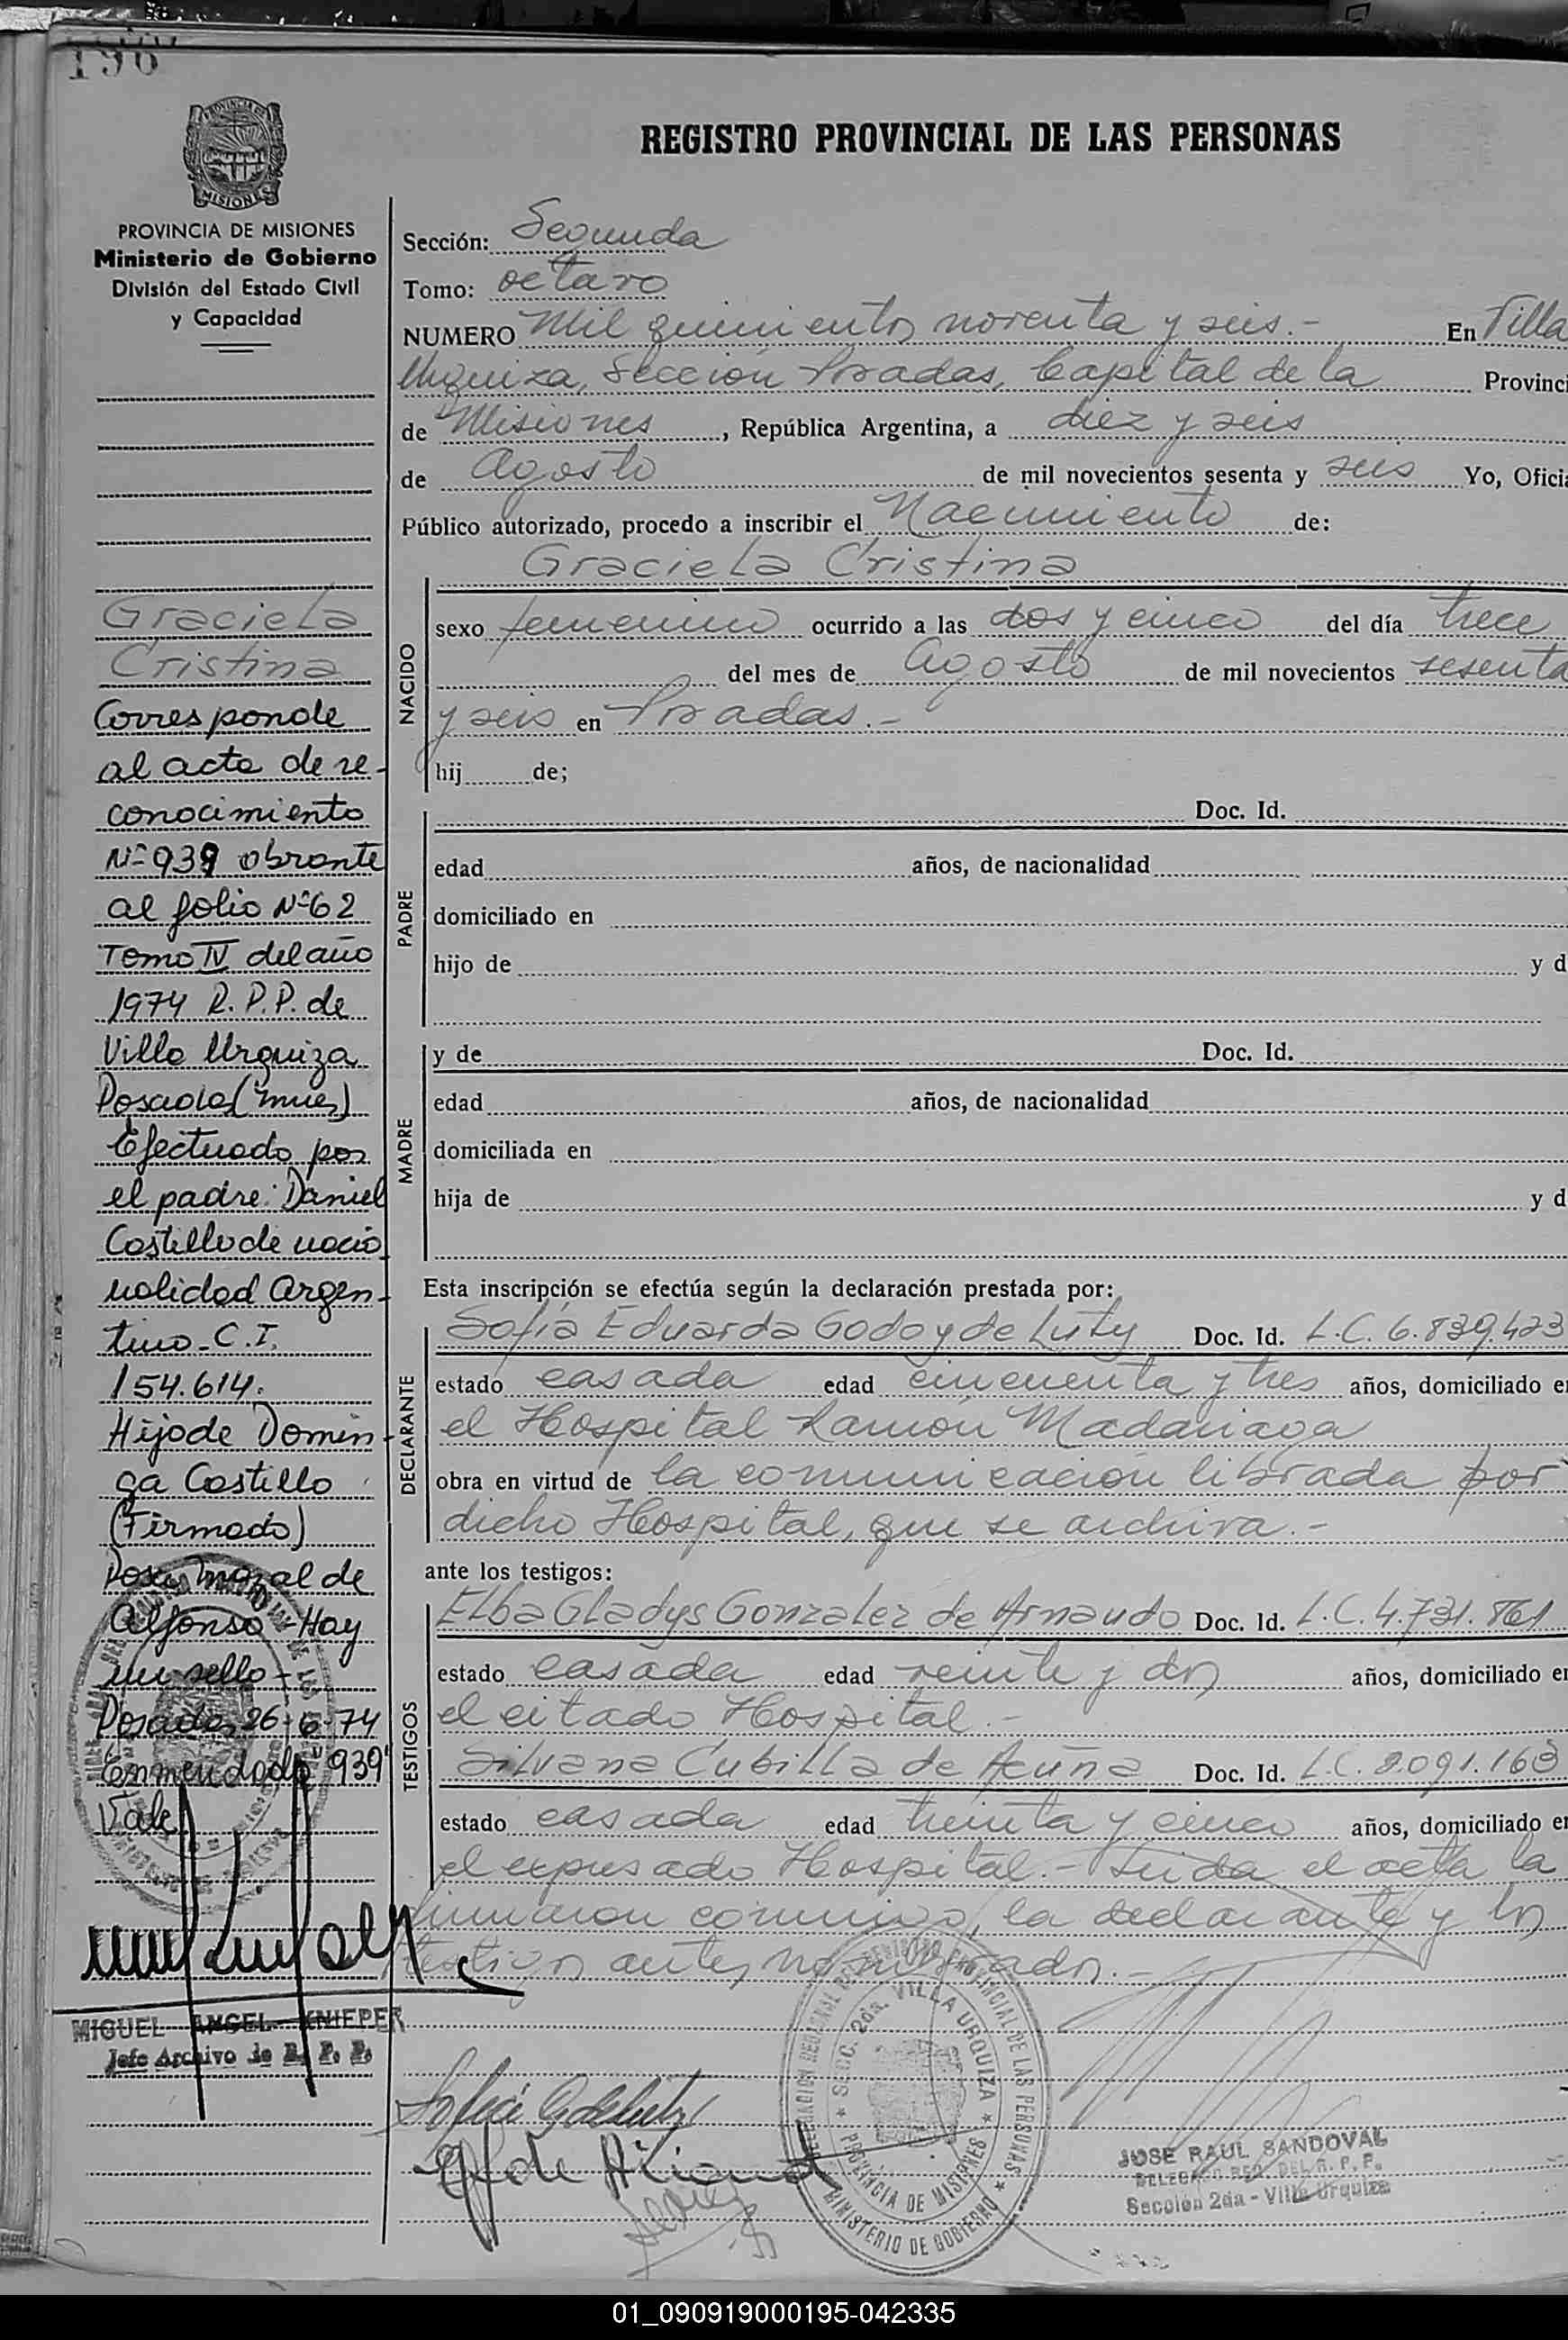 196
REGISTRO PROVINCIAL DE LAS PERSONAS
PROVINCIA DE MISIONES
MISIONES
PROVINCIA DE MISIONES
Ministerio de Gobierno
División del Estado Civil
y Capacidad
Graciela
Cristina
Corresponde
al acta de re-
conocimiento
Nº 939 obrante
al folio Nº 62
Tomo IV del año
1974 R.P.P. de
Villa Urquiza
Posadas (Mnes)
Efectuado por
el padre: Daniel
Costillo de nacio
nalidad Argen-
tino - C.I.
154.614.
Hijo de Domin-
ga Costillo
(Firmado)
Rosa de
Alfonso - Hay
un sello -
Posadas 26-6-74
Enmendado "939"
Vale
MIGUEL ANGEL KNIEPER
Jefe Archivo de R. P. P.
Sección: Segunda
Tomo: octavo
NUMERO Mil quinientos noventa y seis.- En Villa
Urquiza, Sección Posadas, Capital de la Provinci
de Misiones, República Argentina, a diez y seis
de Agosto de mil novecientos sesenta y seis Yo, Oficia
Público autorizado, procedo a inscribir el Nacimiento de:
NACIDO
Graciela Cristina
sexo femenino ocurrido a las dos y cinco del día trece
del mes de Agosto de mil novecientos sesenta
y seis en Posadas.-
hij de;
PADRE
Doc. Id.
edad años, de nacionalidad
domiciliado en
hijo de y d
MADRE
y de Doc. Id.
edad años, de nacionalidad
domiciliada en
hija de y d
Esta inscripción se efectúa según la declaración prestada por:
DECLARANTE
Sofía Eduarda Godoy de Luty Doc. Id. L.C. 6.839.423
estado casada edad cincuenta y tres años, domiciliado en
el Hospital Ramón Madariaga
obra en virtud de la comunicación librada por
dicho Hospital, que se archiva.-
ante los testigos:
TESTIGOS
Elba Gladys Gonzalez de Arnaudo Doc. Id. L.C. 4.731.861
estado casada edad veinte y dos años, domiciliado en
el citado Hospital.-
Silvana Cubilla de Acuña Doc. Id. L.C. 2.091.163
estado casada edad treinta y cinco años, domiciliado en
el expresado Hospital.- Leida el acta la
firmaron conmigo, la declarante y los
testigos antes nombrados.-
DELEGACION REGIONAL DEL REGISTRO PROVINCIAL DE LAS PERSONAS
SECC. 2da. VILLA URQUIZA
PROVINCIA DE MISIONES
MINISTERIO DE GOBIERNO
JOSE RAUL SANDOVAL
DELEGADO REG. DEL R. P. P.
Sección 2da - Villa Urquiza
01_090919000195-042335